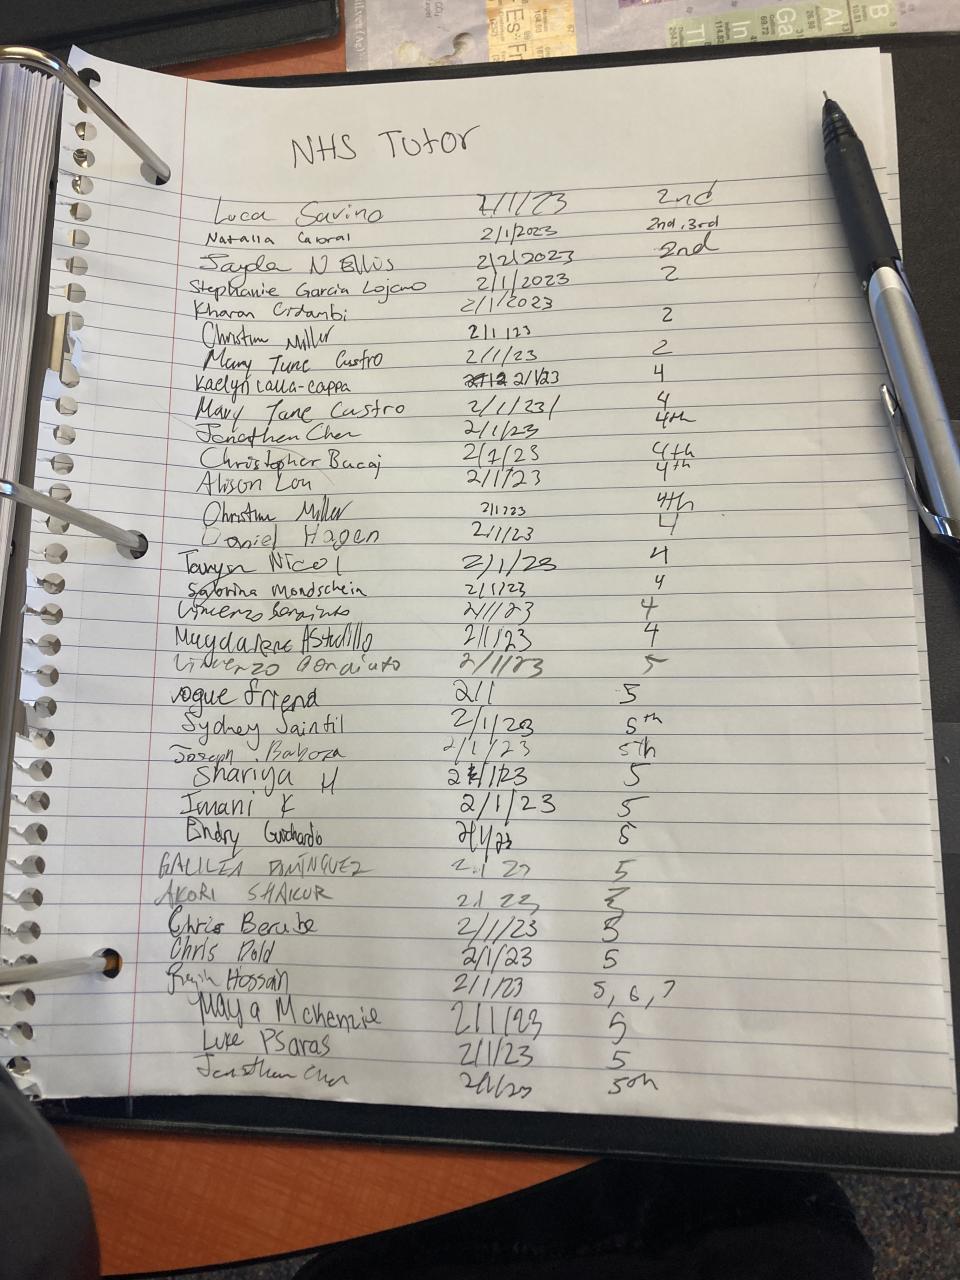 Es Fr
Tl In Ga Al B
NHS Tutor
Luca Savino 2/1/23 2nd
Natalia Cabral 2/1/2023 2nd, 3rd
Jayda N Ellis 2/2/2023 2nd
Stephanie Garcia Lojano 2/1/2023 2
Kharan 2/1/2023
Christian Miller 2/1/23 2
Mary Jane Castro 2/1/23 2
Kaelyn Lalla-Cappa 2/1/23 4
Mary Jane Castro 2/1/23/ 4
Jonathen Chen 2/1/23 4th
Christopher Bacaj 2/1/23 4th
Alison Lou 2/1/23 4th
Christian Miller 2/1/23 4th
Daniel Hagen 2/1/23 4
Taryn Nicol 2/1/23 4
Sabrina Mondschein 2/1/23 4
Vincenzo 2/1/23 4
Magdalena Astudillo 2/1/23 4
Vincenzo 2/1/23 5
vogue friend 2/1 5
Sydney Saintil 2/1/23 5th
Joseph Barboza 2/1/23 5th
Shariya H 2/1/23 5
Imani K 2/1/23 5
Endry Guichardo 2/1/23 5
GALILEA DOMINGUEZ 5
AKORI SHAKUR
Chris Berube 2/1/23 5
Chris Dold 2/1/23 5
Hossain 2/1/23 5, 6, 7
Maya Mckenzie 2/1/23 5
Luke Psaras 2/1/23 5
Jonathen Chen 2/1/23 5th